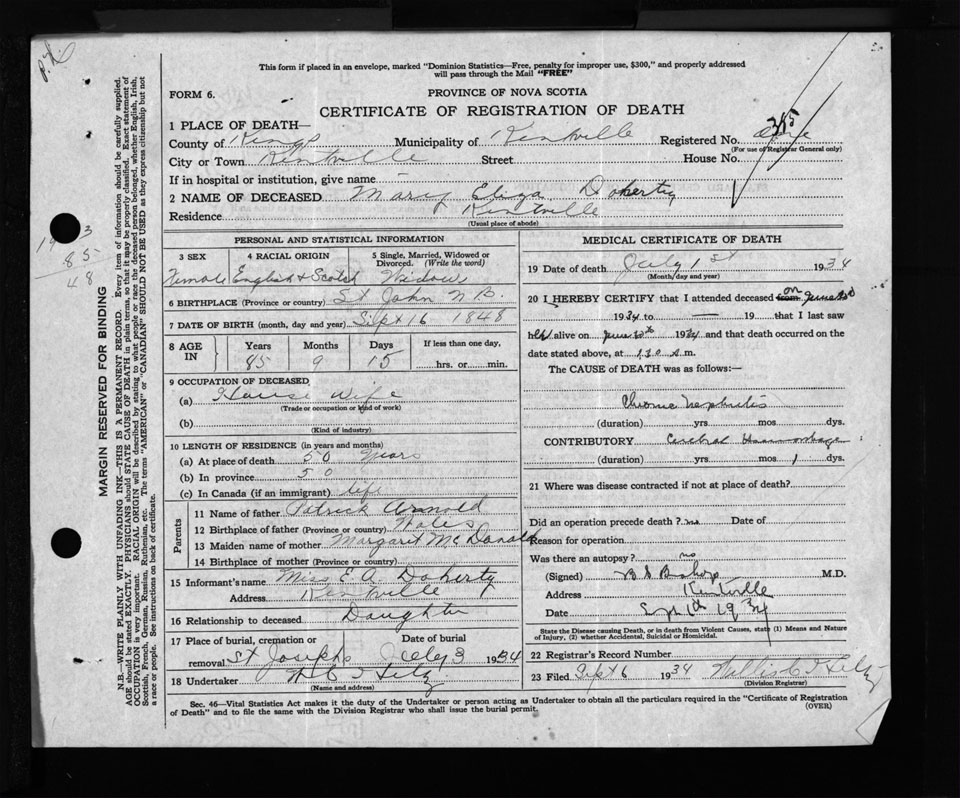 P.L.
This form if placed in an envelope, marked "Dominion Statistics—Free, penalty for improper use, $300," and properly addressed
will pass through the Mail "FREE"
FORM 6.
PROVINCE OF NOVA SCOTIA
CERTIFICATE OF REGISTRATION OF DEATH
385
1 PLACE OF DEATH—
County of Kings Municipality of Kentville Registered No.
(For use of Registrar General only)
City or Town Kentville Street House No.
If in hospital or institution, give name
2 NAME OF DECEASED Mary Eliza Doherty
Residence Kentville
(Usual place of abode)
PERSONAL AND STATISTICAL INFORMATION
3 SEX 4 RACIAL ORIGIN 5 Single, Married, Widowed or
Divorced. (Write the word)
Female English & Scotch Widow
6 BIRTHPLACE (Province or country) St John N.B.
7 DATE OF BIRTH (month, day and year) Sept 16 1848
8 AGE IN Years Months Days If less than one day,
85 9 15 hrs. or min.
9 OCCUPATION OF DECEASED
(a) House wife
(Trade or occupation or kind of work)
(b)
(Kind of industry)
10 LENGTH OF RESIDENCE (in years and months)
(a) At place of death 50 Years
(b) In province 50
(c) In Canada (if an immigrant) life
Parents
11 Name of father Patrick Arnold
12 Birthplace of father (Province or country) Wales
13 Maiden name of mother Margaret McDonald
14 Birthplace of mother (Province or country)
15 Informant's name Miss E. A. Doherty
Address Kentville
16 Relationship to deceased Daughter
17 Place of burial, cremation or Date of burial
removal St Josephs July 3 1934
18 Undertaker
(Name and address)
MEDICAL CERTIFICATE OF DEATH
19 Date of death July 1st 1934
(Month, day and year)
20 I HEREBY CERTIFY that I attended deceased from on June 30
1934 to — 19 that I last saw
her alive on June 30th 1934 and that death occurred on
date stated above, at 1.30 a.m.
The CAUSE of DEATH was as follows:—
Chronic nephritis
(duration) yrs. mos. dys.
CONTRIBUTORY Cerebral Haemorrhage
(duration) yrs. mos. 1 dys.
21 Where was disease contracted if not at place of death?
Did an operation precede death? no Date of
Reason for operation
Was there an autopsy? no
(Signed) B S Bishop M.D.
Address Kentville
Date Sept 1934
State the Disease causing Death, or in death from Violent Causes, state (1) Means and Nature
of Injury, (2) whether Accidental, Suicidal or Homicidal.
22 Registrar's Record Number
23 Filed Sept 6 1934
(Division Registrar)
Sec. 46—Vital Statistics Act makes it the duty of the Undertaker or person acting as Undertaker to obtain all the particulars required in the "Certificate of Registration
of Death" and to file the same with the Division Registrar who shall issue the burial permit.
(OVER)
MARGIN RESERVED FOR BINDING
N.B.—WRITE PLAINLY WITH UNFADING INK—THIS IS A PERMANENT RECORD. Every item of information should be carefully supplied.
AGE should be stated EXACTLY. PHYSICIANS should STATE CAUSE OF DEATH in plain terms, so that it may be properly classified. Exact statement of
OCCUPATION is very important. RACIAL ORIGIN will be described by stating to what people or race the deceased person belonged, whether English, Irish,
Scottish, French, German, Russian, Ruthenian, etc. The terms "AMERICAN" or "CANADIAN" SHOULD NOT BE USED as they express citizenship but not
a race or people. See instructions on back of certificate.
85
48